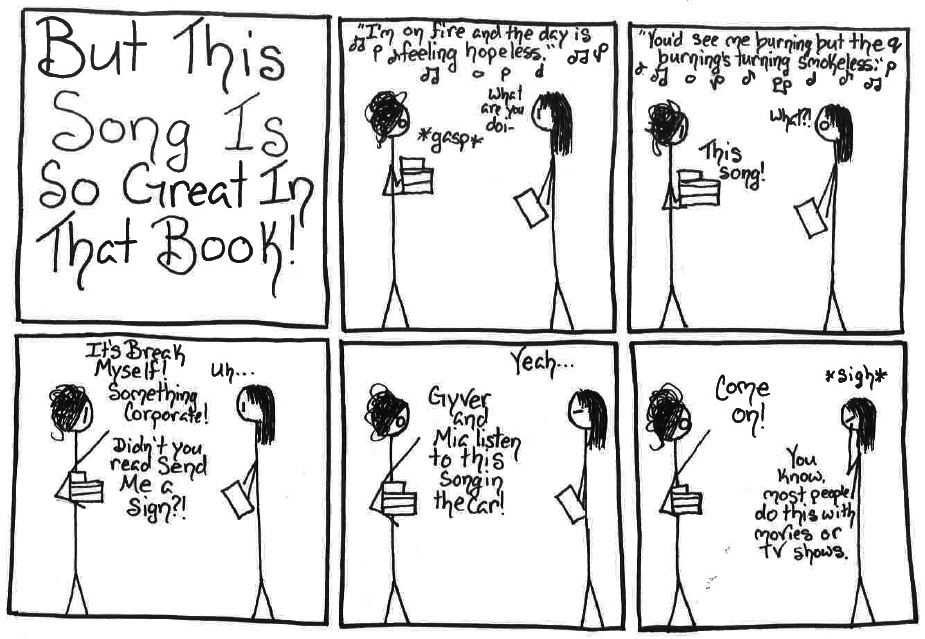 But This
Song Is
So Great In
That Book!
"I'm on fire and the day is
feeling hopeless."
*gasp*
What
are you
doi-
"You'd see me burning but the
burning's turning smokeless."
This
song!
What?!
It's Break
Myself!
Something
Corporate!
Didn't you
read Send
Me a
Sign?!
Uh...
Yeah...
Gyver
and
Mia listen
to this
song in
the car!
Come
on!
*sigh*
You
know,
most people
do this with
movies or
TV shows.